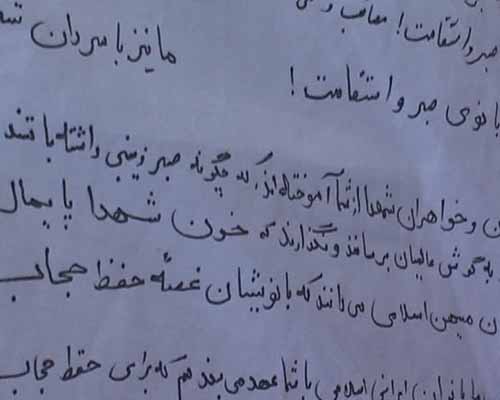 صبر و استقامت! مصائب و
ما نیز با سردان
بانوی صبر و استقامت!
و خواهران شهدا از شما آموخته‌اند که چگونه صبر زینبی داشته باشند
به گوش عالمیان برسانند و نگذارند که خون شهدا پایمال
میهن اسلامی می‌دانند که بانویشان غصّه حفظ حجاب
بانوان ایرانی اسلامی با شما عهد می‌بندیم که برای حفظ حجاب